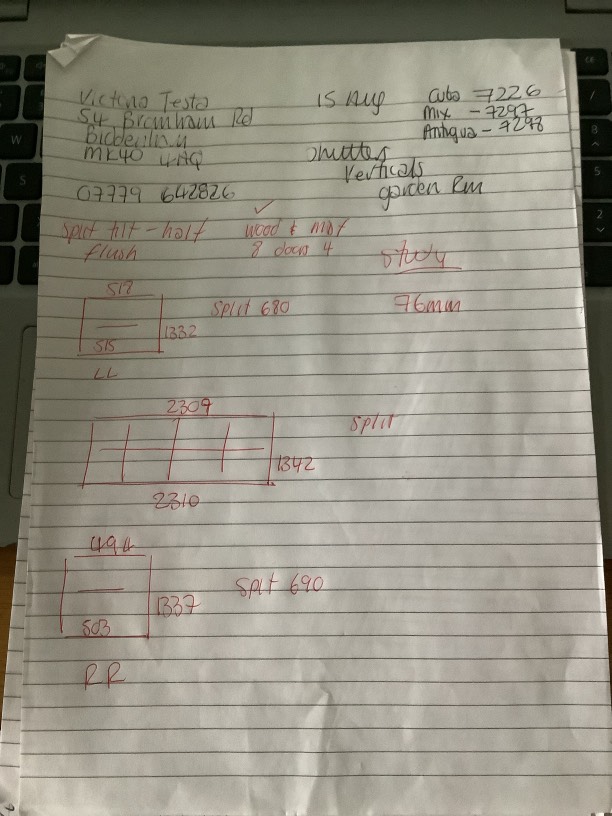 Victoria Testa
54 Bromham Rd
MK40 4AQ
07779 642826
15 Aug
Cuba 7226
Mix - 7297
Antigua - 7298
Shutters
Verticals
garden Rm
Split tilt - half
flush
✓
wood &
8 doors 4
Study
76mm
515
1332
LL
Split 680
2309
1342
2310
Split
494
1337
503
RR
Split 690